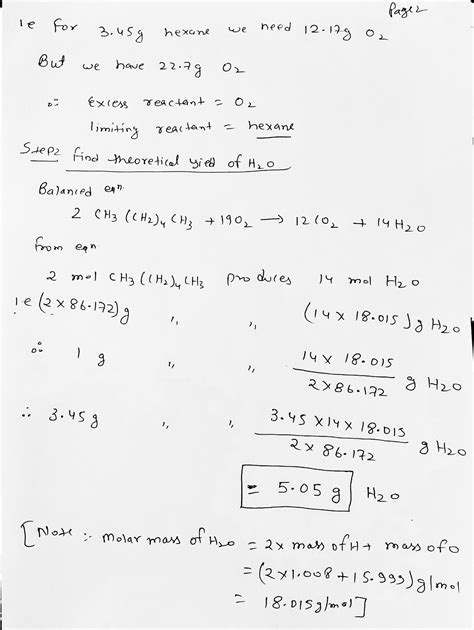 Page 2
ie for 3.45g hexane we need 12.17g O2
But we have 22.7g O2
∴ Excess reactant = O2
limiting reactant = hexane
Step2 find theoretical yield of H2O
Balanced eqn.
2 CH3 (CH2)4 CH3 + 19O2 → 12CO2 + 14H2O
from eqn
2 mol CH3 (CH2)4 CH3 produces 14 mol H2O
ie (2 x 86.172) g ,, ,, (14 x 18.015) g H2O
∴ 1 g ,, ,, 14 x 18.015 / 2x86.172 g H2O
∴ 3.45g ,, ,, 3.45 x14 x 18.015 / 2 x 86.172 g H2O
= 5.05 g H2O
[Note :- Molar mass of H2O = 2x mass of H + mass of O
= (2x1.008 + 15.999) g/mol
= 18.015g/mol]